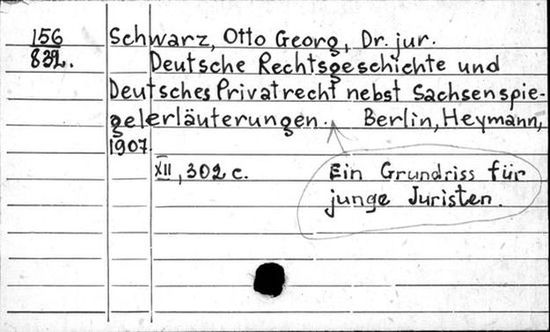 156 Schwarz, Otto Georg, Dr. jur.
832. Deutsche Rechtsgeschichte und
Deutsches Privatrecht nebst Sachsenspie-
gelerläuterungen. Berlin, Heymann,
1907.
XII, 302 c. Ein Grundriss für
junge Juristen.